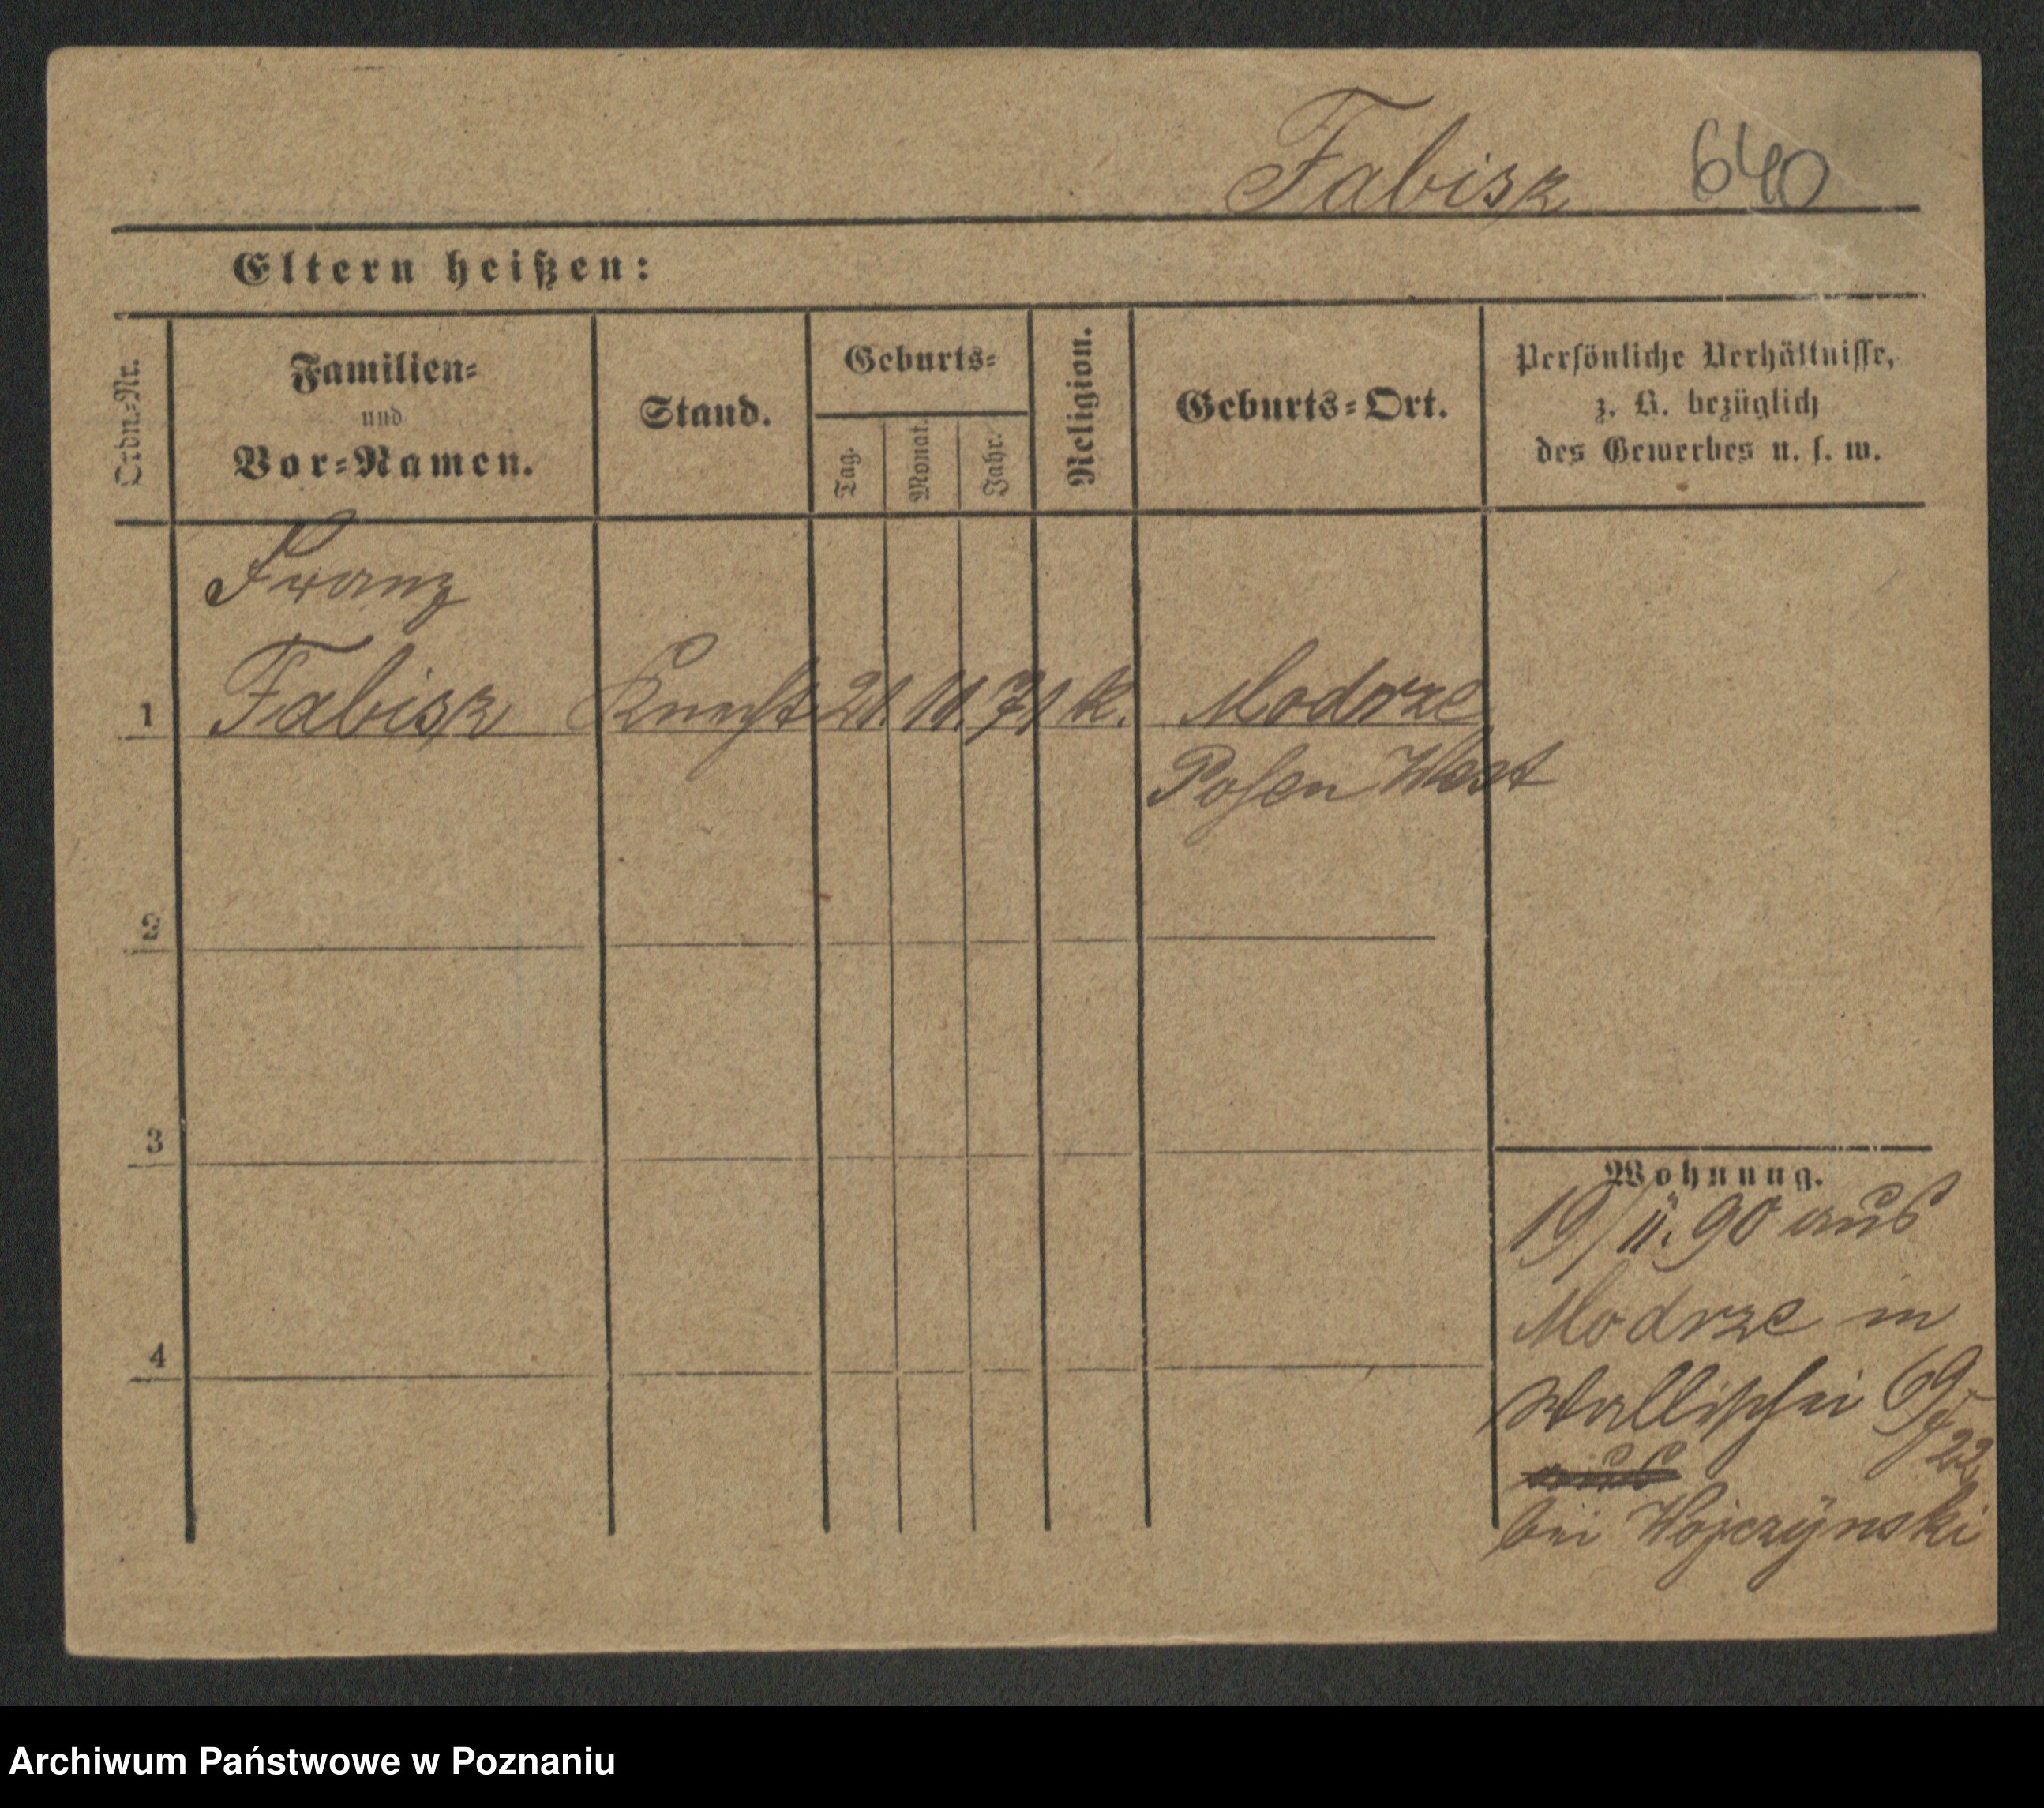 Fabisz 640
Eltern heißen:
Ordn.-Nr.
Familien-
und
Vor-Namen.
Stand.
Geburts-
Tag.
Monat.
Jahr.
Religion.
Geburts-Ort.
Persönliche Verhältnisse,
z. B. bezüglich
des Gewerbes u. s. w.
Franz
1 Fabisz Knecht 21. 11. 71 k. Modrze
Posen West
2
3
4
Wohnung.
19/11. 90 aus
Modrze in
Wallischei 69
aus
bei Wojczÿnski
Archiwum Państwowe w Poznaniu